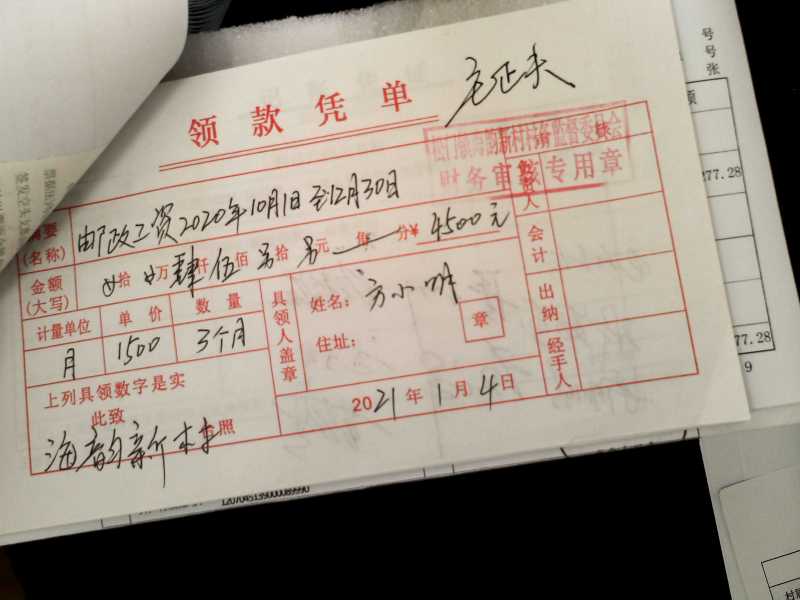 号
号
张
领款凭单
财务审核专用章
摘要
(名称)
邮政工资2020年10月1日至12月30日
金额
(大写)
拾 万肆仟伍佰 拾 元 角 分¥4500元
计量单位
单价
数量
月
1500
3个月
具领人盖章
姓名:方小明
住址:
章
会计
出纳
经手人
上列具领数字是实
此致
台照
海韵新村
2021年1月4日
277.28
77.28
9
1207045139000089990